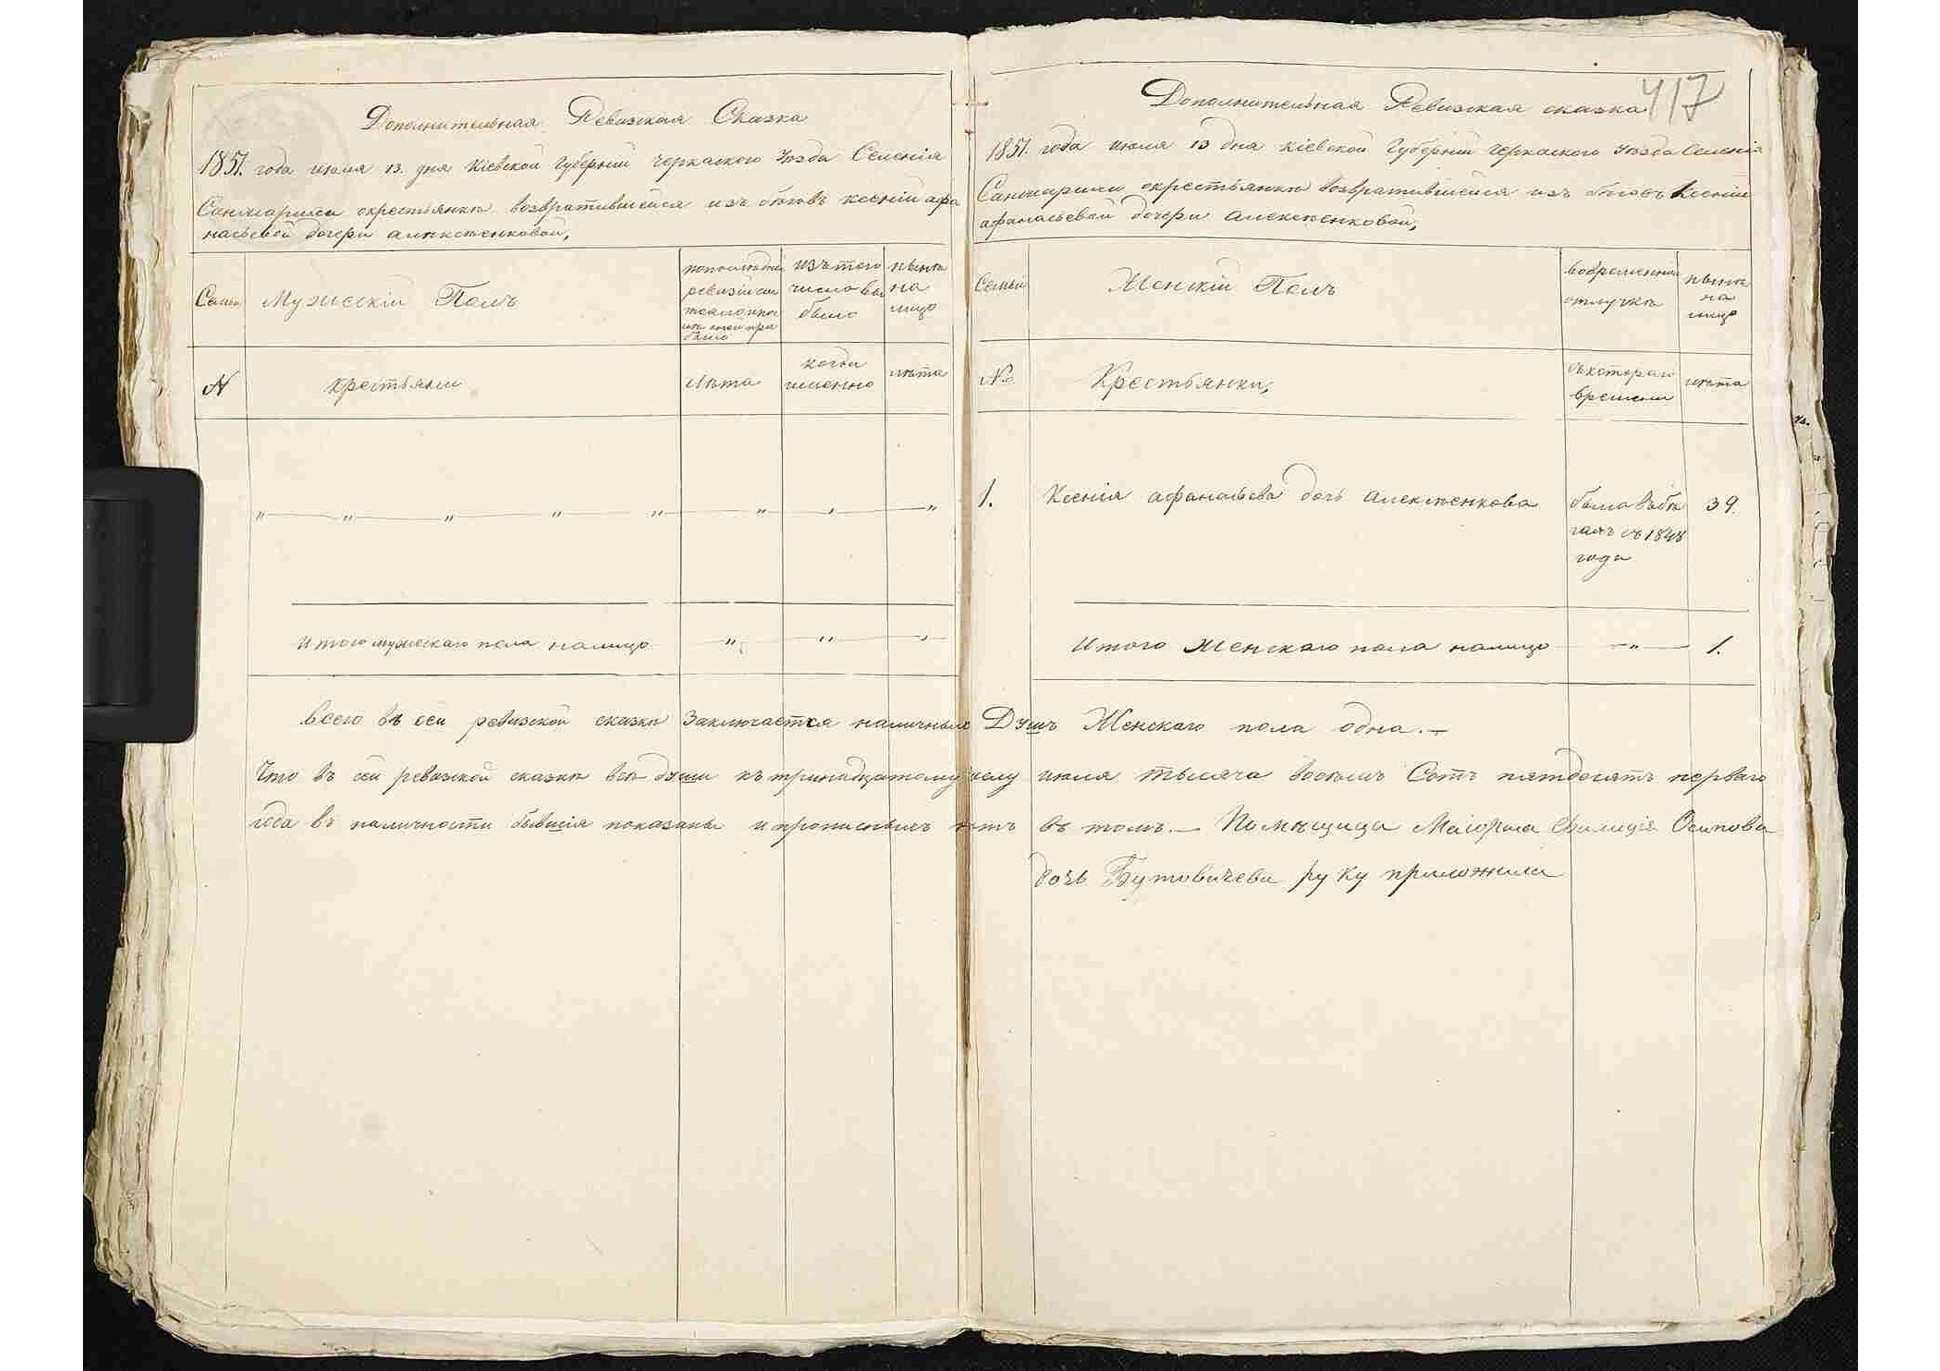 Дополнительная Ревизская Сказка
1851. года июля 13. дня Кіевской Губерніи Черкаского Уѣзда Селенія
окрестьянкѣ возвратившейся изъ бѣговъ Ксеніи афа
насьевой дочери алексѣенковой,
Семьи
Мужескій Полъ
попослѣдней
ревизіи со
изъ того
числа вы
было
нынѣ
на
лицо
N
крестьяни
Лѣта
когда
именно
лѣта
Итого мужескаго пола налицо
417
Дополнительная Ревизская сказка
1851. года июля 13 дня Кіевской Губерніи Черкаского Уѣзда Селенія
окрестьянкѣ возвратившейся изъ бѣговъ Ксеніи
афанасьевой дочери алексѣенковой,
Семьи
Женскій Полъ
вовременной
отлучкѣ
нынѣ
на
лицо
№
Крестьянки,
съкотораго
времени
лѣта
1.
Ксенія афанасьева дочь алексѣенкова
была въ бѣ
гахъ съ 1848
года
39.
Итого Женскаго пола налицо
1.
всего въ сей ревизской сказкѣ Заключается наличныхъ Душъ Женскаго пола одна.—
Что въ сей ревизской сказкѣ всѣ души къ тринадцатому числу июля тысяча восемь Сотъ пятдесятъ перваго
года въ наличности бывшія показаны и прописныхъ нѣтъ въ томъ.— Помѣщица Маіорша Фелиція Осипова
дочь Бутовичева руку приложила